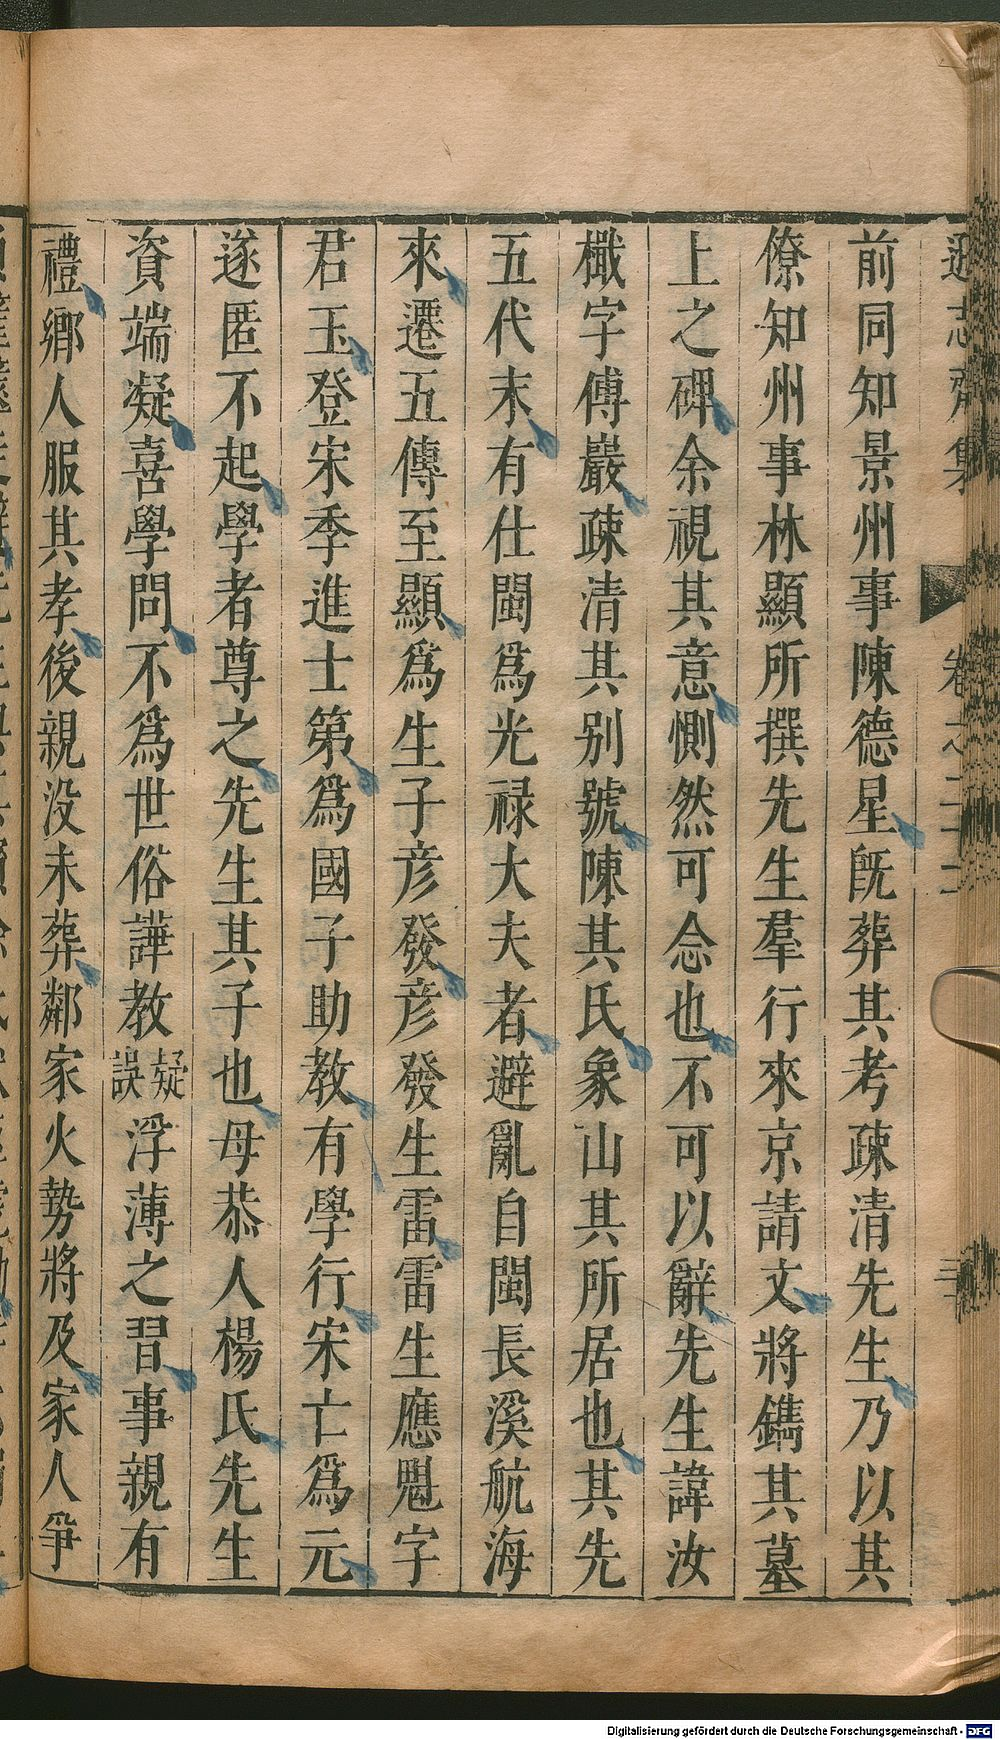 遜志齋集 卷之二十二
前同知景州事陳德星旣葬其考疎清先生乃以其
僚知州事林顯所撰先生羣行來京請文將鐫其墓
上之碑余視其意惻然可念也不可以辭先生諱汝
檝字傅巖疎清其别號陳其氏象山其所居也其先
五代末有仕閩爲光禄大夫者避亂自閩長溪航海
來遷五傳至顯爲生子彦發彦發生雷雷生應魁字
君玉登宋季進士第爲國子助教有學行宋亡爲元
遂匿不起學者尊之先生其子也母恭人楊氏先生
資端凝喜學問不爲世俗譁教疑誤浮薄之習事親有
禮鄉人服其孝後親没未葬鄰家火勢將及家人爭
Digitalisierung gefördert durch die Deutsche Forschungsgemeinschaft - DFG